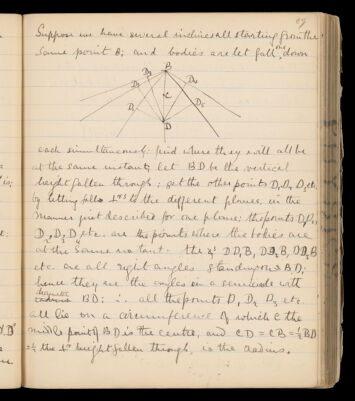 29
Suppose we have several inclines all starting from the
same point B; and bodies are let fall one down
B
D3
D4
D2
C
D1
D5
D
each simultaneously: find where they will all be
at the same instant; let BD be the vertical
height fallen through; get the other points D1 D2 D3 etc
by letting fall ⊥rs to the different planes, in the
manner just described for one plane; the points D, D1,
D2, D3, D4 etc. are the points where the bodies are
at the same instant: the ∠s DD1B, DD2B, DD3B
etc. are all right angles standing on BD;
hence they are the angles in a semicircle with
diameter BD; ∴ all the points D, D2 D3 etc.
all lie on a circumference of which C the
middle point of BD is the centre, and CD = CB = ½BD
= ½ the ⊥r height fallen through, is the radius.